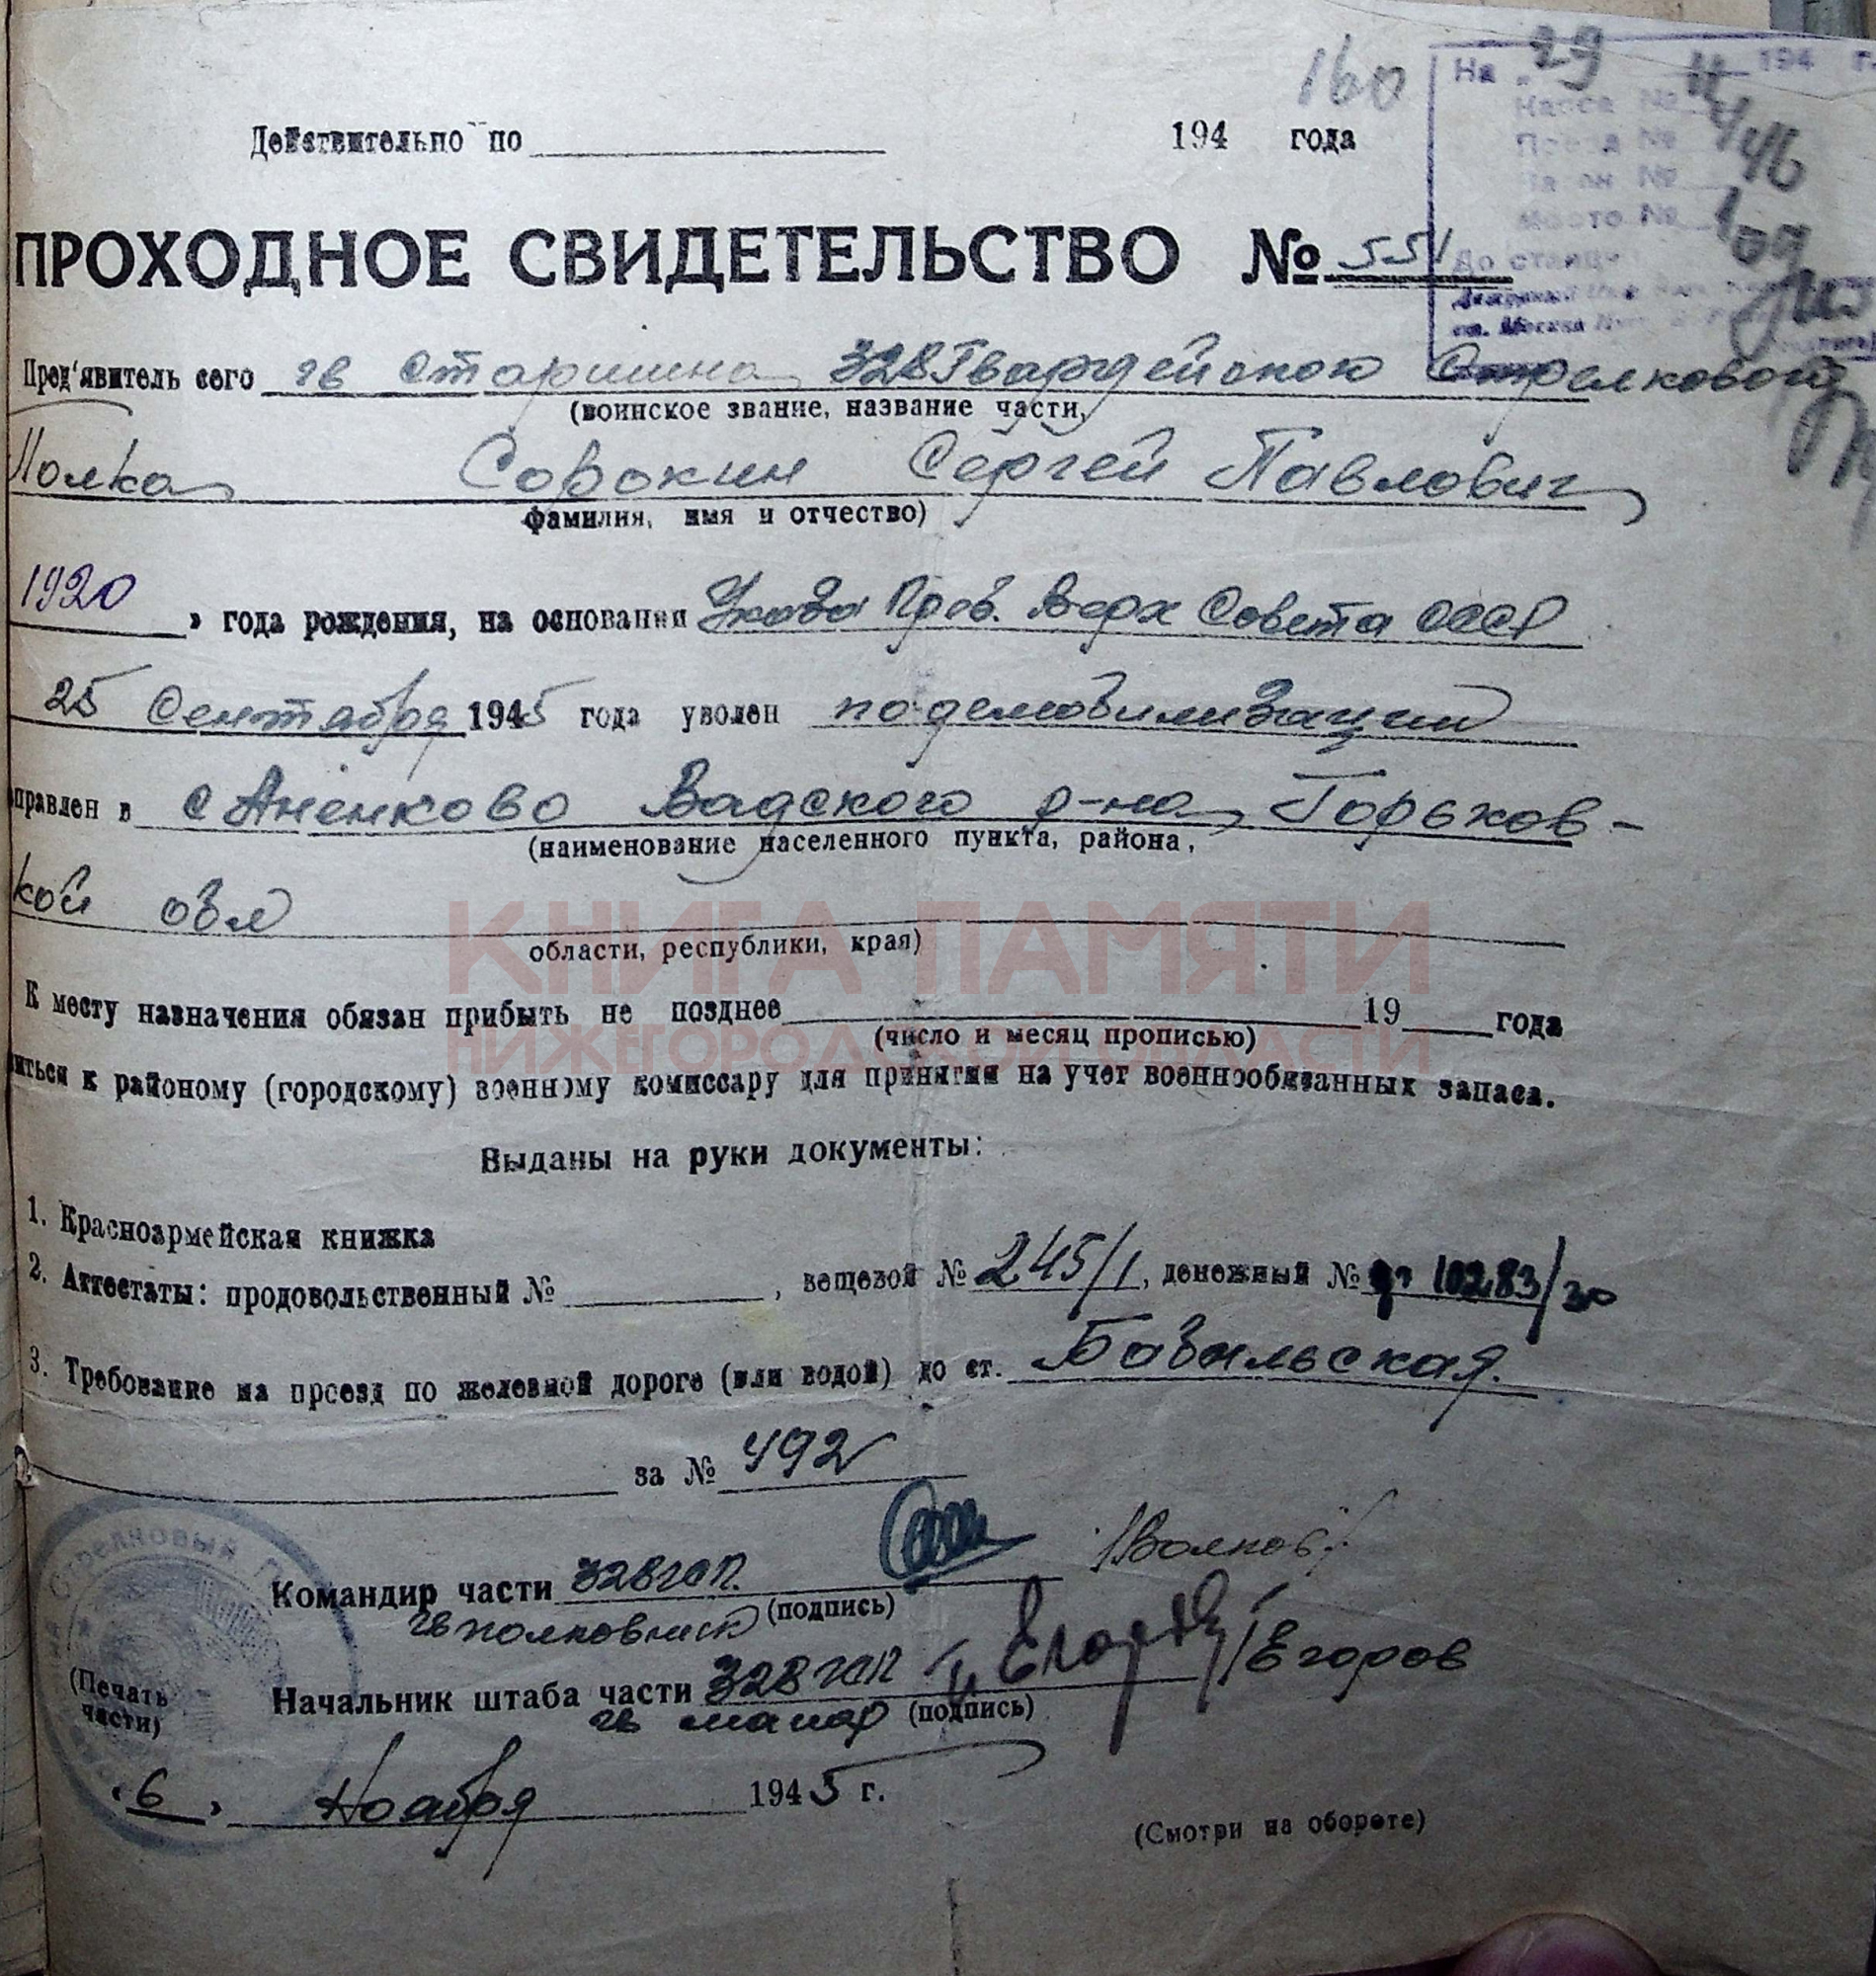 160
На „29 11 194 г.
Касса №
Поезд № 446
Вагон №
Место №
До станци
ст. Москва
Действительно по 194 года
ПРОХОДНОЕ СВИДЕТЕЛЬСТВО № 551
Пред'явитель сего гв старшина 328 Гвардейского Стрелковой
(воинское звание, название части,
Полка Сорокин Сергей Павлович
фамилия, имя и отчество)
1920 » года рождения, на основании Указа През. Верх Совета СССР
25 Сентября 1945 года уволен по демобилизации
аправлен в с Аненково Вадского р-на, Горьков-
(наименование населенного пункта, района,
кой обл
области, республики, края)
КНИГА ПАМЯТИ
К месту назначения обязан прибыть не позднее 19 года
(число и месяц прописью)
НИЖЕГОРОДСКОЙ ОБЛАСТИ
иться к районому (городскому) военному комиссару для принятия на учет военнообязанных запаса.
Выданы на руки документы:
1. Красноармейская книжка
2. Аттестаты: продовольственный № , вещевой № 245/1, денежный № 10283/30
3. Требование на проезд по железной дороге (или водой) до ст. Бобыльская.
за № 492
Стрелковый
Командир части 328 гсп. /Волков/
гв полковник (подпись)
Начальник штаба части 328 гсп Егоров /Егоров
(Печать
части)
гв майор (подпись)
«6» Ноября 1945 г.
(Смотри на обороте)